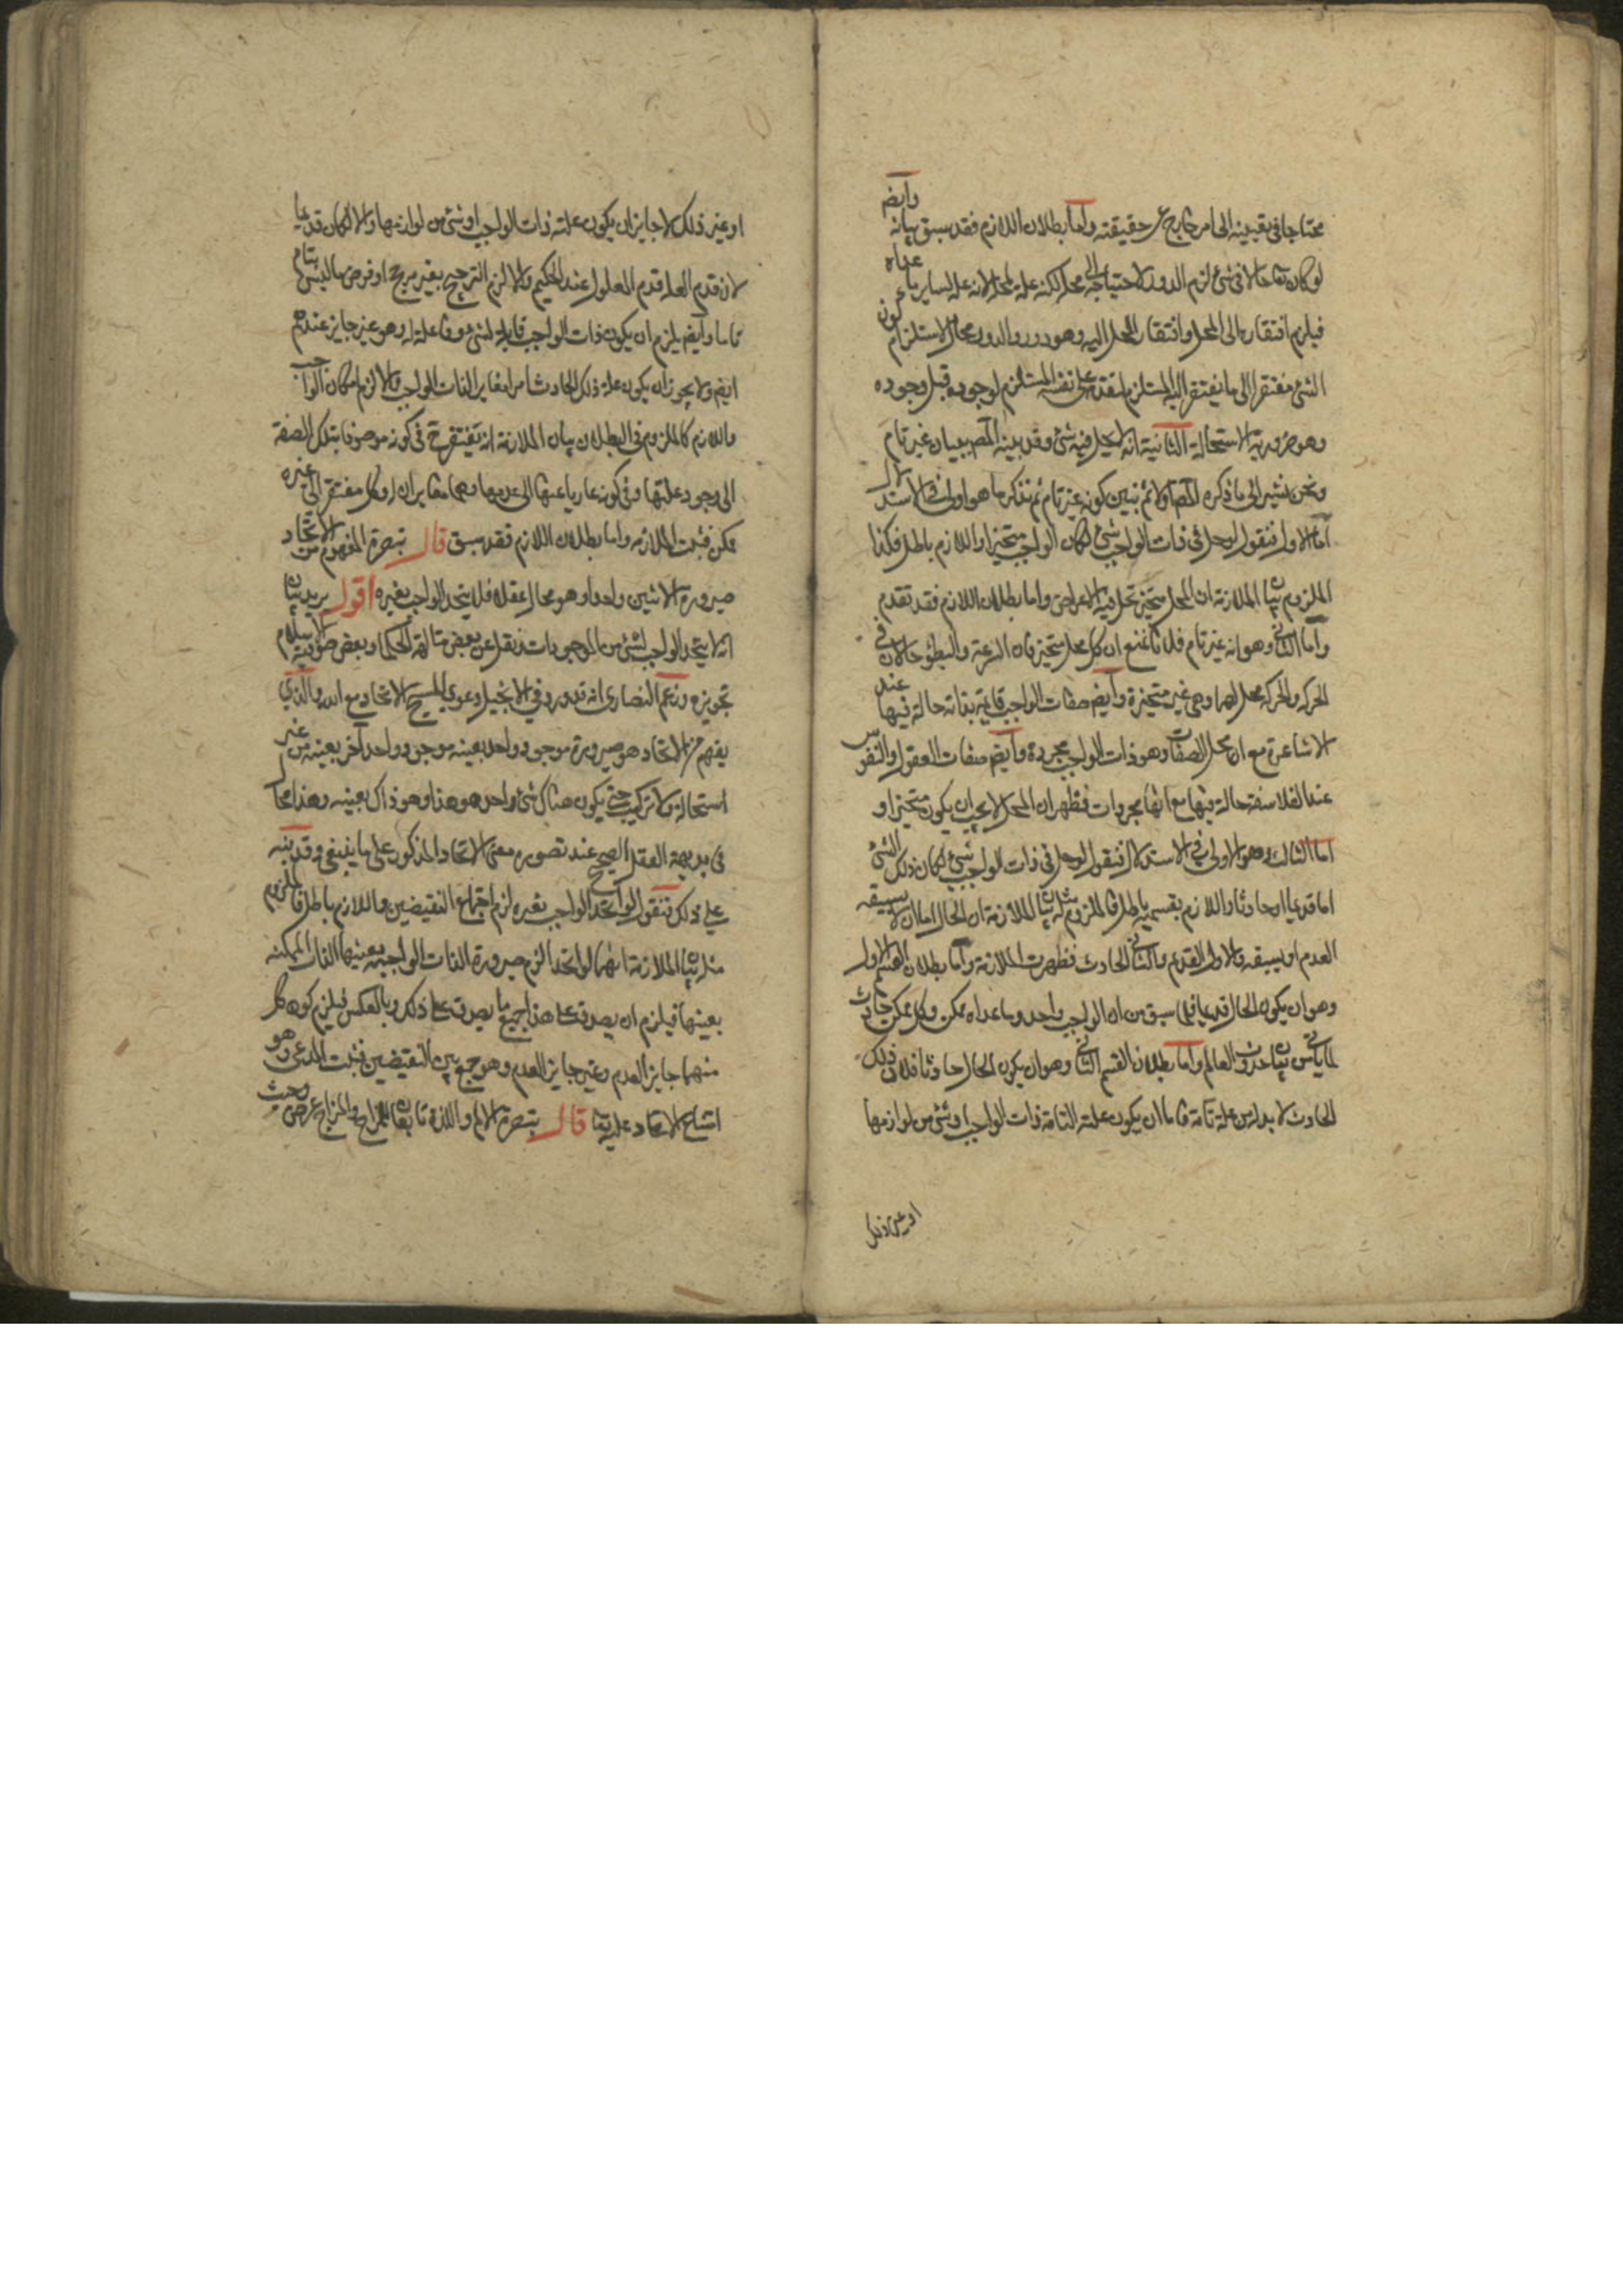 محتاجا فى تعينه الى امر خارج عن حقيقته واما بطلان اللازم فقد سبق بيانه وايضا
لو كان تعالى حالا فى شئ لزم الدور لاحتياجه الى محل لكنه علة لمحله لانه علة لساير ما عداه
فيلزم افتقاره الى المحل وافتقار المحل اليه وهو دور والدور محال لاستلزام كون
الشئ مفتقرا الى ما يفتقر اليه المستلزم لتقدمه على نفسه المستلزم لوجوده قبل وجوده
وهو ضرورية الاستحالة الثانية انه لا يحل فيه شئ وقد بينه المص ببيان غير تام
ونحن نشير الى ما ذكره المص اولا ثم نبين كونه غير تام ثم نذكر ما هو اولى فى الاستدلال
اما الاول فنقول لو حل فى ذات الواجب شئ لكان الواجب متحيزا واللازم باطل فكذا
الملزوم بيان الملازمة ان المحل متحيز تحل فيه الاعراض واما بطلان اللازم فقد تقدم
واما الثانى وهو انه غير تام فلانا نمنع ان كل محل متحيز فان السرعة والبطؤ حالان فى
الحركة والحركة محل لهما وهى غير متحيزة وايضا صفات الواجب قائمة بذاته حالة فيها عند
الاشاعرة مع ان محل الصفات وهو ذات الواجب مجردة وايضا صفات العقول والنفوس
عند الفلاسفة حالة فيها مع انها مجردات فظهر ان المحل لا يجب ان يكون متحيزا و
اما الثالث وهو الاولى فى الاستدلال فنقول لو حل فى ذات الواجب شئ لكان ذلك الشئ
اما قديما او حادثا واللازم بقسميه باطل فالملزوم مثله بيان الملازمة ان الحال اما ان لا يسبقه
العدم او يسبقه والاول القديم والثانى الحادث فظهرت الملازمة واما بطلان القسم الاول
وهو ان يكون الحال قديما فلما سبق من ان الواجب واحد وما عداه ممكن وكل ممكن حادث
لما ياتى من بيان حدوث العالم واما بطلان القسم الثانى وهو ان يكون الحال حادثا فلان ذلك
الحادث لا بد له من علة تامة فاما ان يكون علته التامة ذات الواجب او شئ من لوازمها
او غير ذلك
او غير ذلك لا جايز ان يكون علته ذات الواجب او شئ من لوازمها والا لكان قديما
لان قدم العلة قدم المعلول عند الحكيم والا لزم الترجيح بغير مرجح او فرض ما ليس بتام
تاما وايضا يلزم ان يكون ذات الواجب قابلة لشئ هو فاعلة له وهو غير جايز عندهم
ايضا ولا يجوز ان يكون علة ذلك الحادث امرا مغايرا لذات الواجب والا لزم امكان الواجب
واللازم كالملزوم فى البطلان بيان الملازمة انه يفتقر ح فى كونه موصوفا بتلك الصفة
الى وجود علتها وفى كونه عاريا عنها الى عدمها وهما مغايران له وكل مفتقر الى غيره
ممكن فثبت الملازمة واما بطلان اللازم فقد سبق قال تبصرة المفهوم من الاتحاد
صيرورة الاثنين واحدا وهو محال عقلا فلا يتحد الواجب بغيره اقول يريد بيان
انه لا يتحد الواجب لشئ من الموجودات ونقل عن بعض متألهة الحكما وبعض صوفية الاسلام
تجويزه وزعم النصارى انه قد ورد فى الانجيل دعوى المسيح الاتحاد مع الله والذى
يفهم من الاتحاد هو صيرورة موجود واحد بعينه موجود واحد آخر بعينه من غير
استحالة ولا تركيب حتى يكون هناك شئ واحد هو هذا وهو ذاك بعينه وهذا محال
فى بديهة العقل الصحيح عند تصوره معنى الاتحاد المذكور على ما ينبغى وقد ينبه
على ذلك فنقول لو اتحد الواجب بغيره لزم اجتماع النقيضين واللازم باطل فالملزوم
مثله بيان الملازمة انهما لو اتحدا لزم صيرورة الذات الواجبة بعينها الذات الممكنة
بعينها فيلزم ان يصدق على هذا جميع ما يصدق على ذلك وبالعكس فيلزم كون كل
منهما جايز العدم وغير جايز العدم وهو جمع بين النقيضين فثبت المدعى وهو
امتناع الاتحاد عليه تعا قال تبصرة الالم واللذة تابعان للمزاج والمزاج عرض وحيث